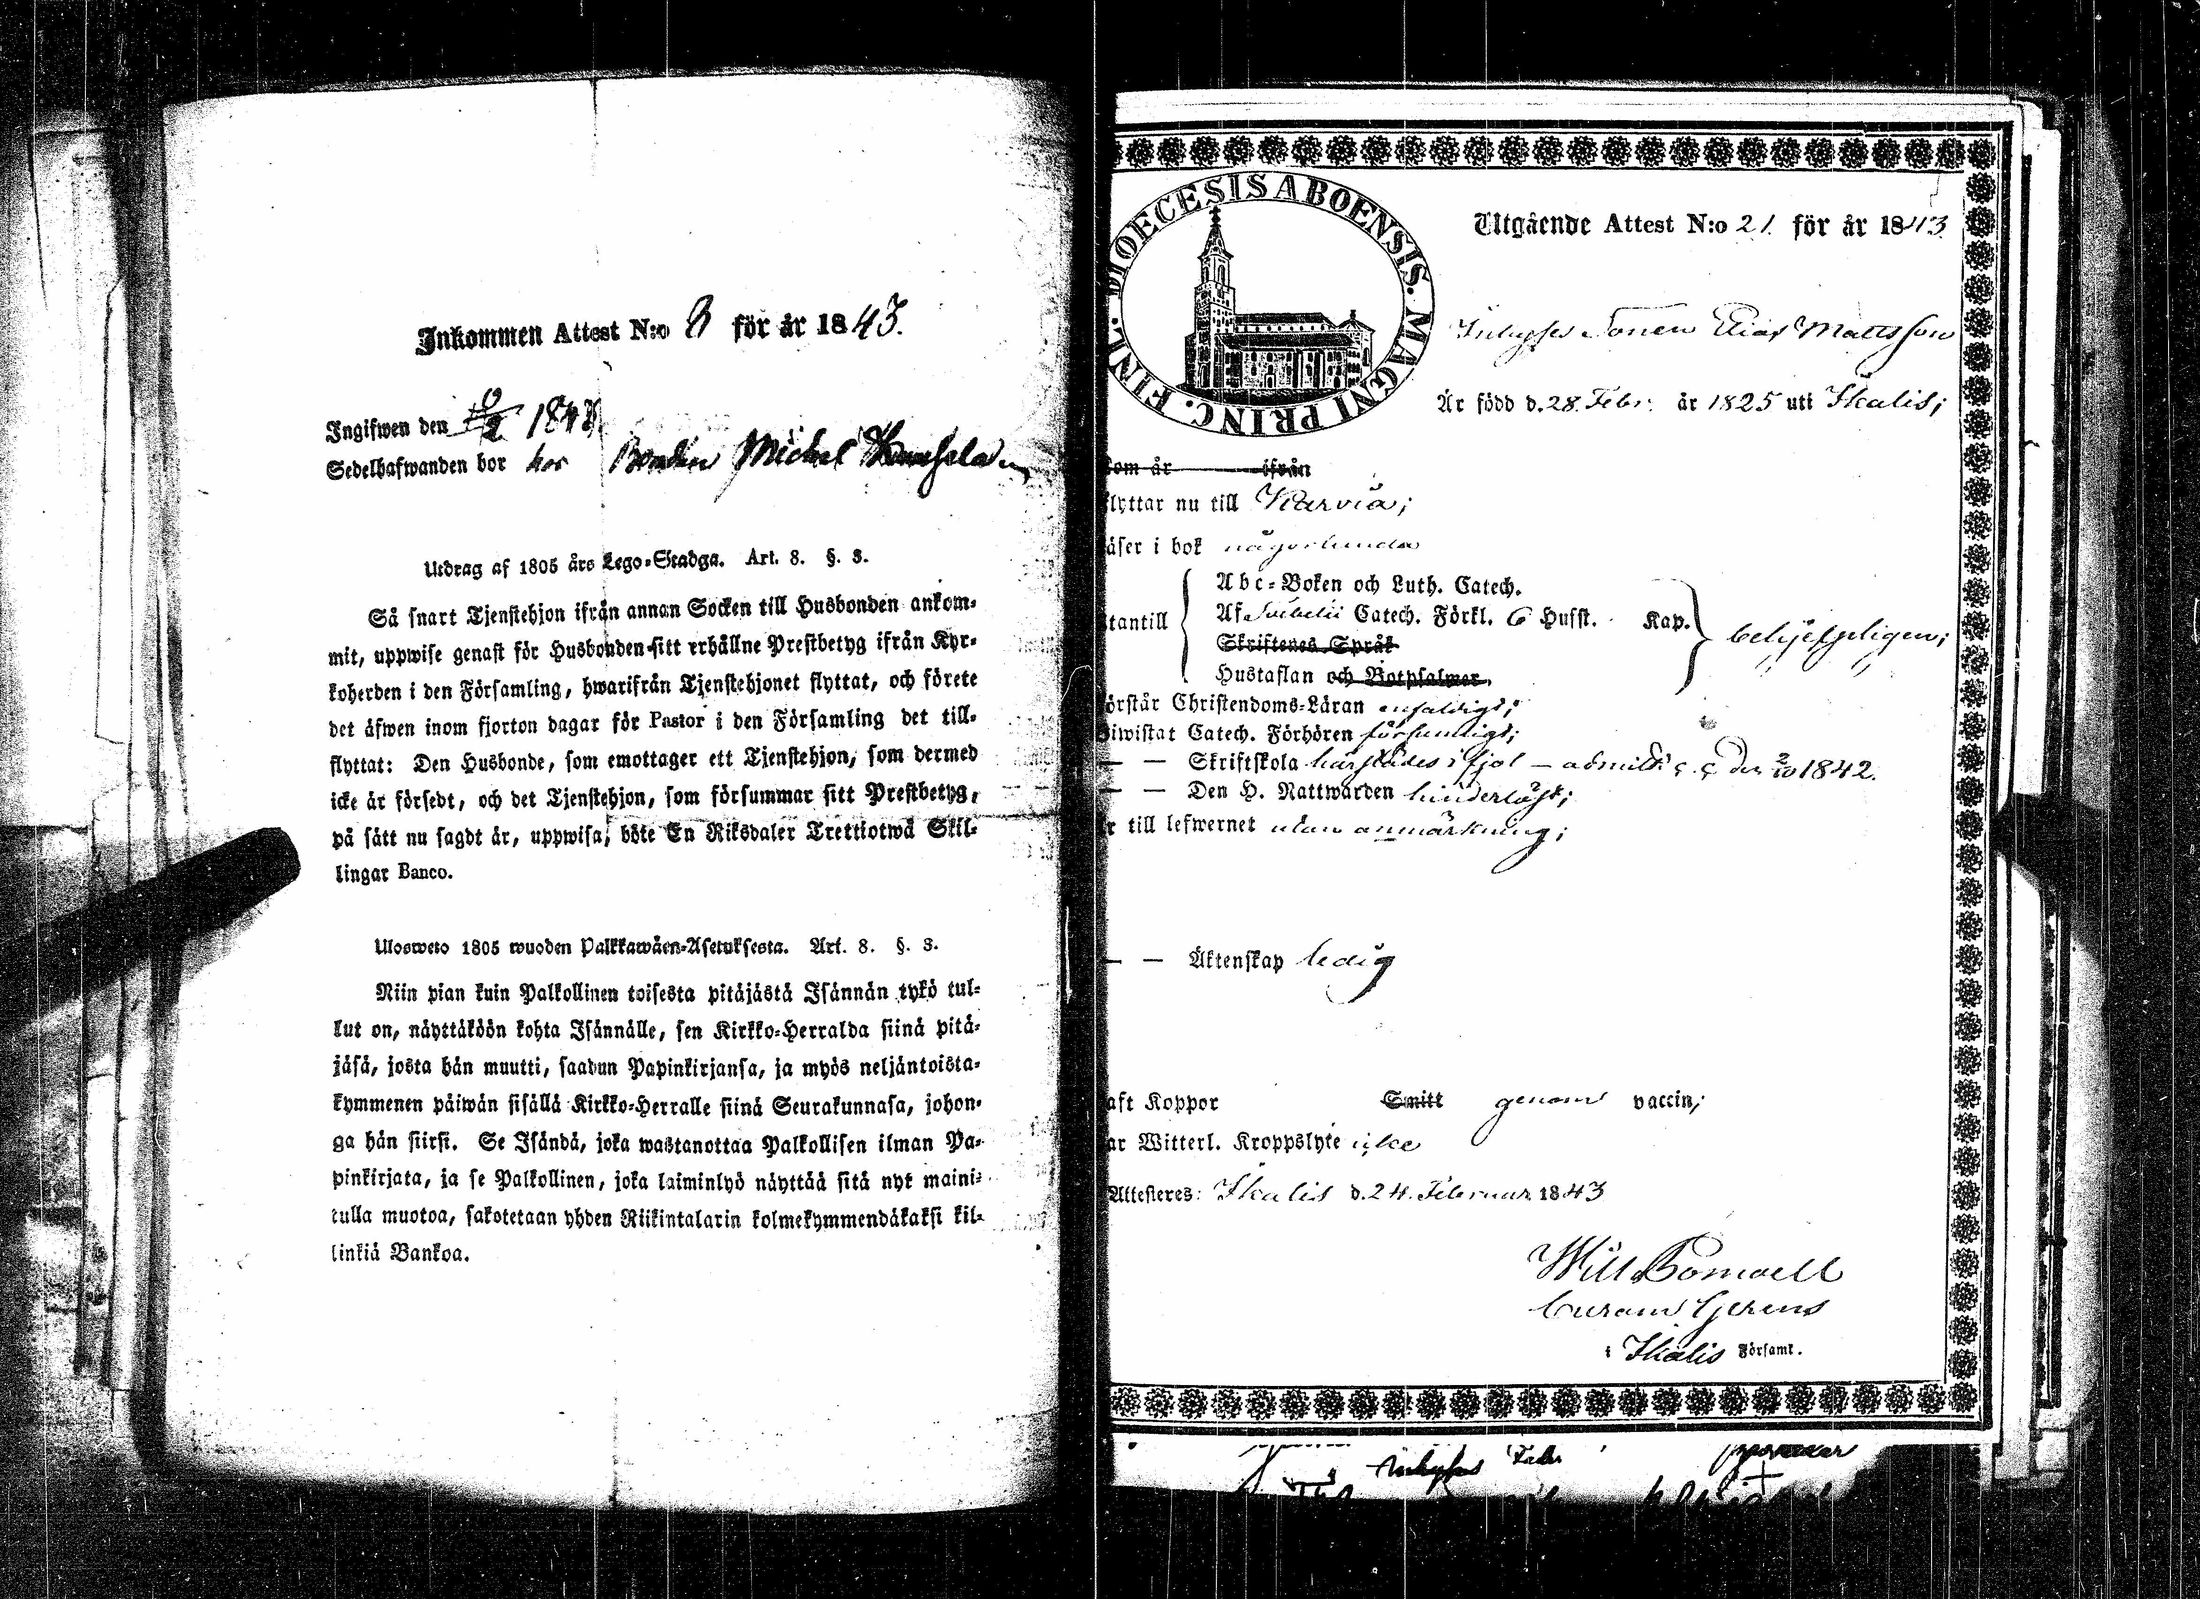 Inkommen Attest N:o 3 för år 1843.
Ingifwen den 1843
Sedelhafwanden bor hos Bonden Michel
Utdrag af 1805 års Lego-Stadga. Art. 8. §. 3.
Så snart Tjenstehjon ifrån annan Socken till Husbonden ankom-
mit, uppwise genast för Husbonden sitt erhållne Prestbetyg ifrån Kyr-
koherden i den Församling, hwarifrån Tjenstehjonet flyttat, och förete
det äfwen inom fjorton dagar för Pastor i den Församling det till-
flyttat: Den Husbonde, som emottager ett Tjenstehjon, som dermed
icke är försedt, och det Tjenstehjon, som försummar sitt Prestbetyg,
på sätt nu sagdt är, uppwisa, böte En Riksdaler Trettiotwå Skil-
lingar Banco.
Ulosweto 1805 wuoden Palkkawäen-Asetuksesta. Art. 8. §. 3.
Niin pian kuin Palkollinen toisesta pitäjästä Isännän tykö tul-
lut on, näyttäköön kohta Isännälle, sen Kirkko-Herralda siinä pitä-
jäsä, josta hän muutti, saadun Papinkirjansa, ja myös neljäntoista-
kymmenen päiwän sisällä Kirkko-Herralle siinä Seurakunnasa, johon-
ga hän siirsi. Se Isändä, joka wastanottaa Palkollisen ilman Pa-
pinkirjata, ja se Palkollinen, joka laiminlyö näyttää sitä nyt maini-
tulla muotoa, sakotetaan yhden Riikintalarin kolmekymmendäkaksi kil-
linkiä Bankoa.
DIOECESIS ABOENSIS. MAGNI PRINC. FINL.
Utgående Attest N:o 21 för år 1843
Inhyses Sonen Elias Mattsson
Är född d. 28 Febr. år 1825 uti Ikalis;
kom år ifrån
flyttar nu till Karvia;
läser i bok någorlunda
Abc-Boken och Luth. Catech.
utantill Af Svebelii Catech. Förkl. 6 Hufst. Kap. behjelpligen;
Skriftenes Språk
Hustaflan och Botpsalmer.
förstår Christendoms-Läran enfaldigt;
Biwistat Catech. Förhören försumligt;
— — Skriftskola härstädes i fjol — admitt. den 2/10 1842.
— — Den H. Nattwarden hinderlöst;
är till lefwernet utan anmärkning;
— — Äktenskap ledig
haft Koppor Smitt genom vaccin;
har Witterl. Kroppslyte icke
Attesteres: Ikalis d. 24. Februar. 1843
Will Bomoell
Curam Gerens
i Ikalis Förfaml.